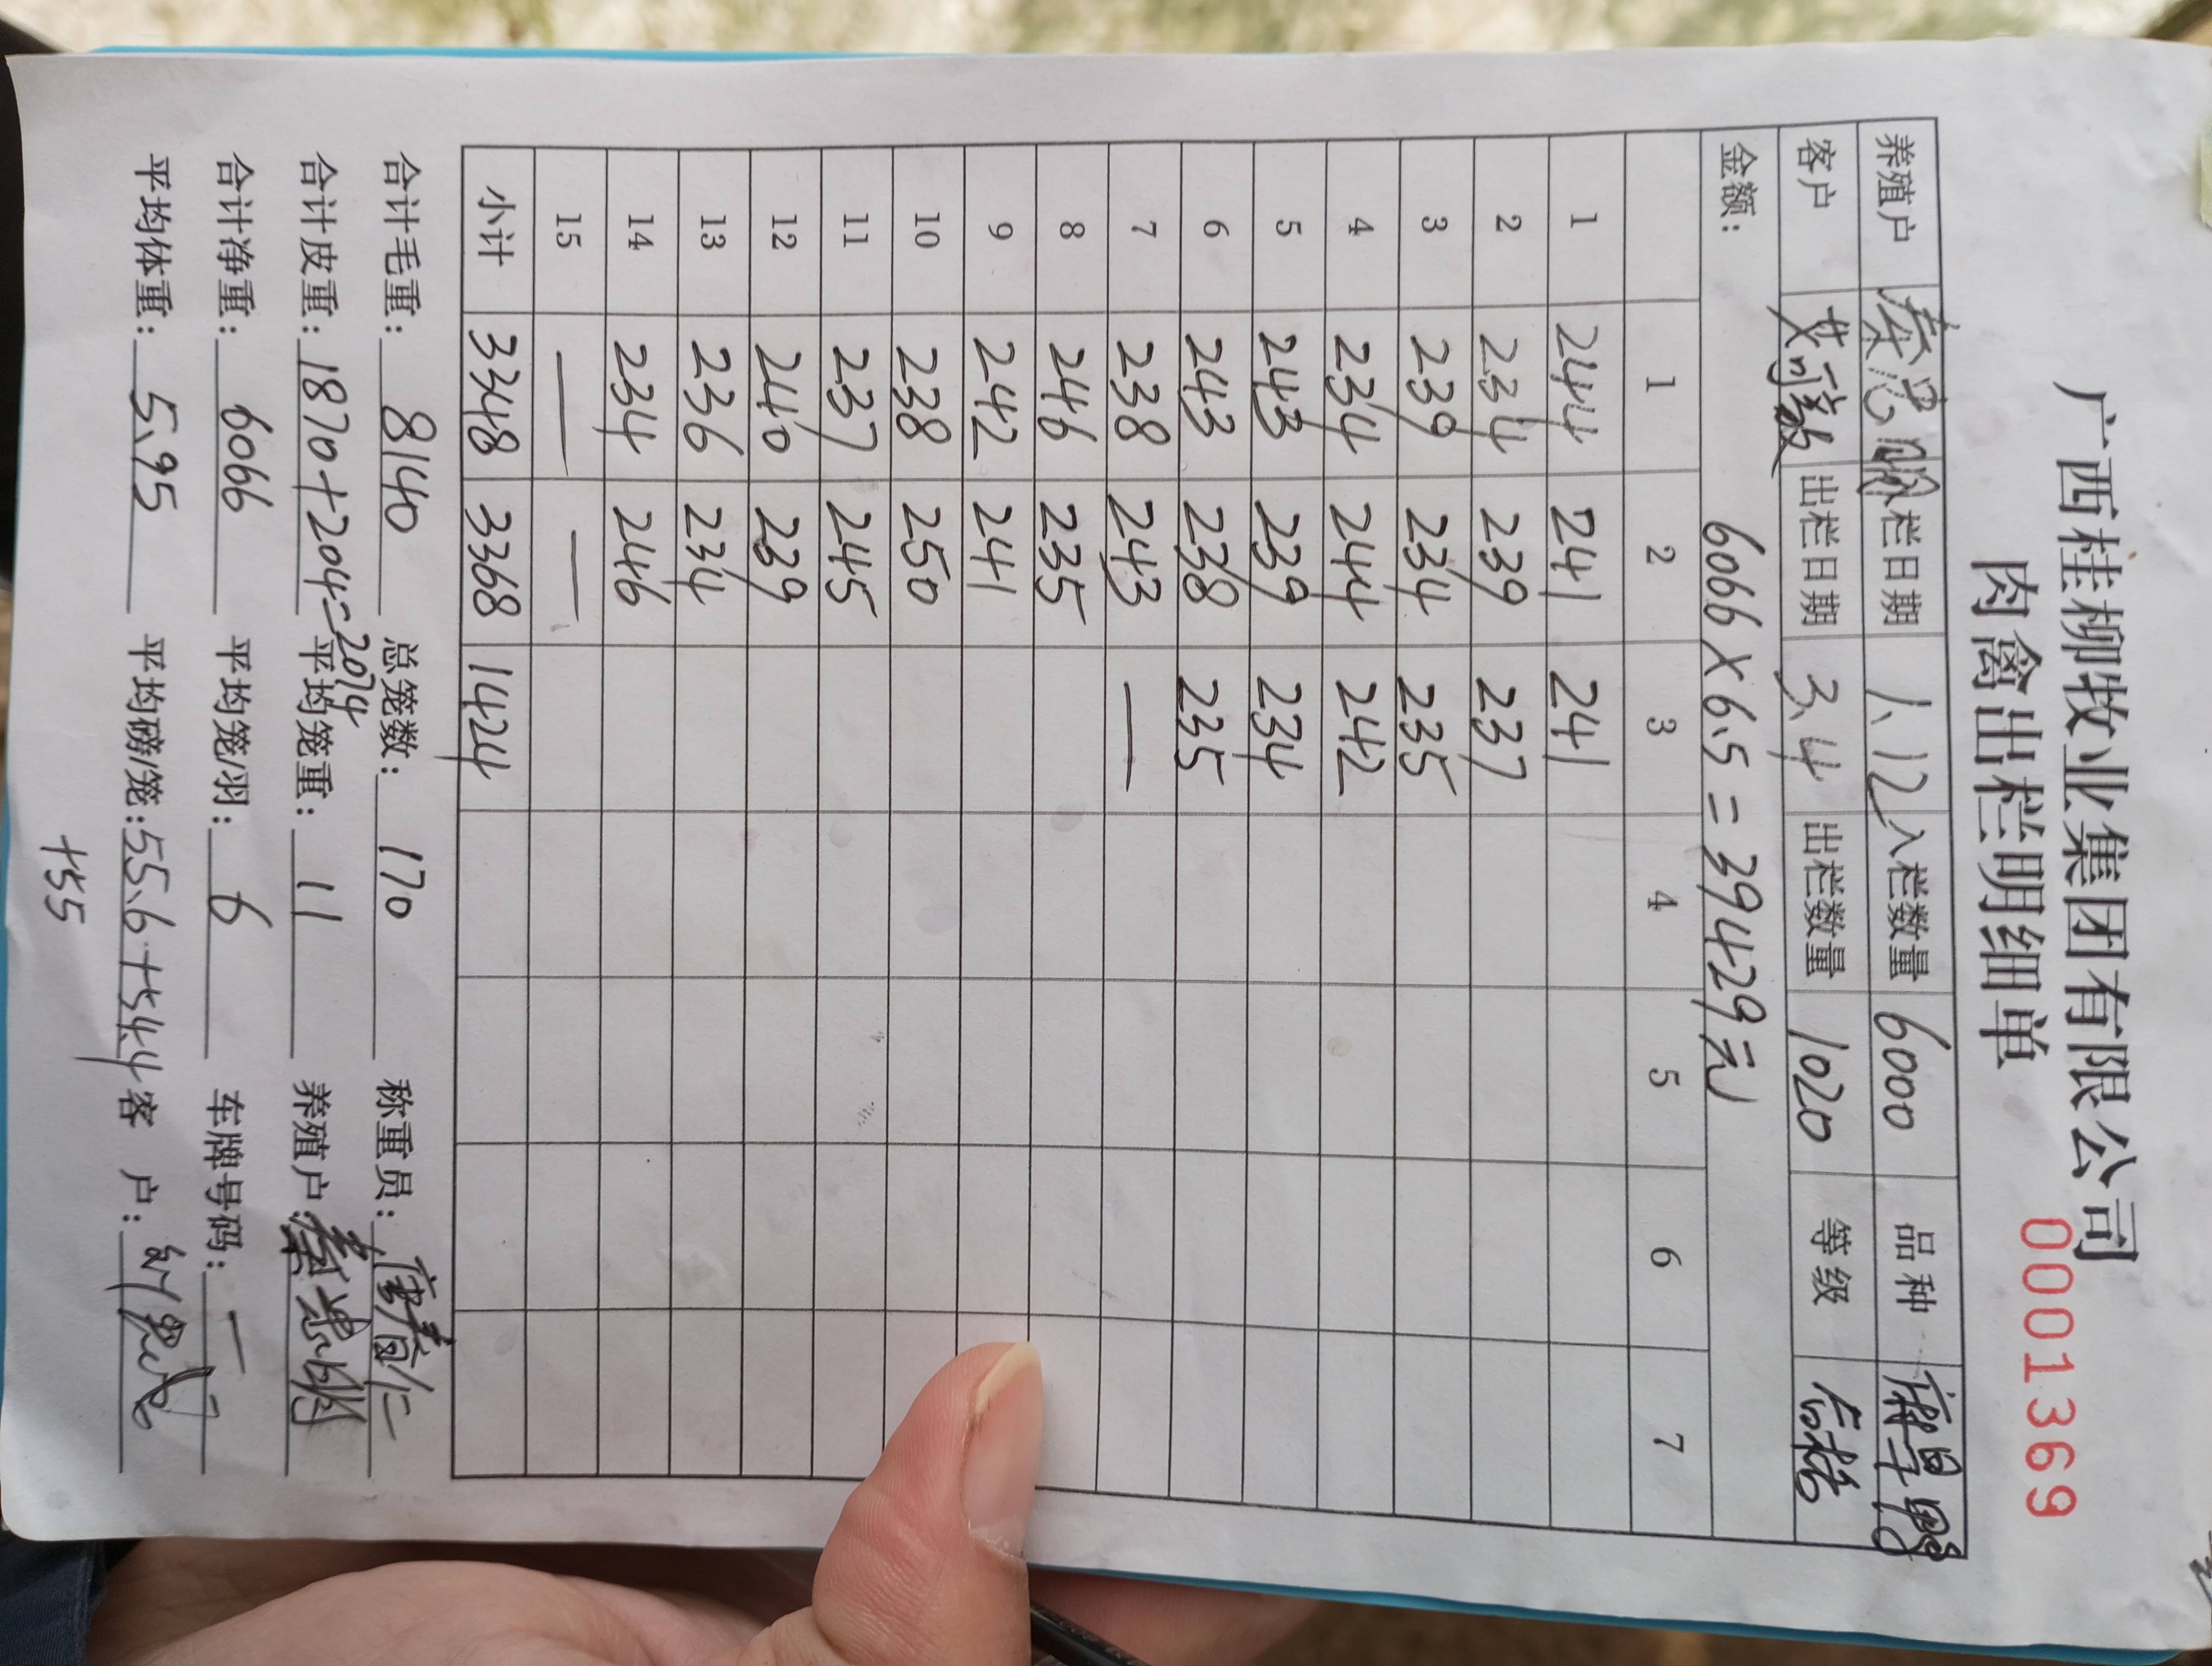 广西桂柳牧业集团有限公司
肉禽出栏明细单
0001369
养殖户 入栏日期 1.12 入栏数量 6000 品种 麻旱鸭
客户 出栏日期 3.4 出栏数量 1020 等级 合格
金额: 6066×6.5=39429元
1 2 3 4 5 6 7
1 244 241 241
2 234 239 237
3 239 234 235
4 234 244 242
5 243 239 234
6 243 238 235
7 238 243 —
8 246 235
9 242 241
10 238 250
11 237 245
12 240 239
13 236 234
14 234 246
15 — —
小计 3348 3368 1424
合计毛重: 8140 总笼数: 170 称重员:
合计皮重: 1870+204=2074 平均笼重: 11 养殖户:
合计净重: 6066 平均笼/羽: 6 车牌号码: —
平均体重: 5.95 平均磅/笼: 55.6+54.4 客 户:
+55